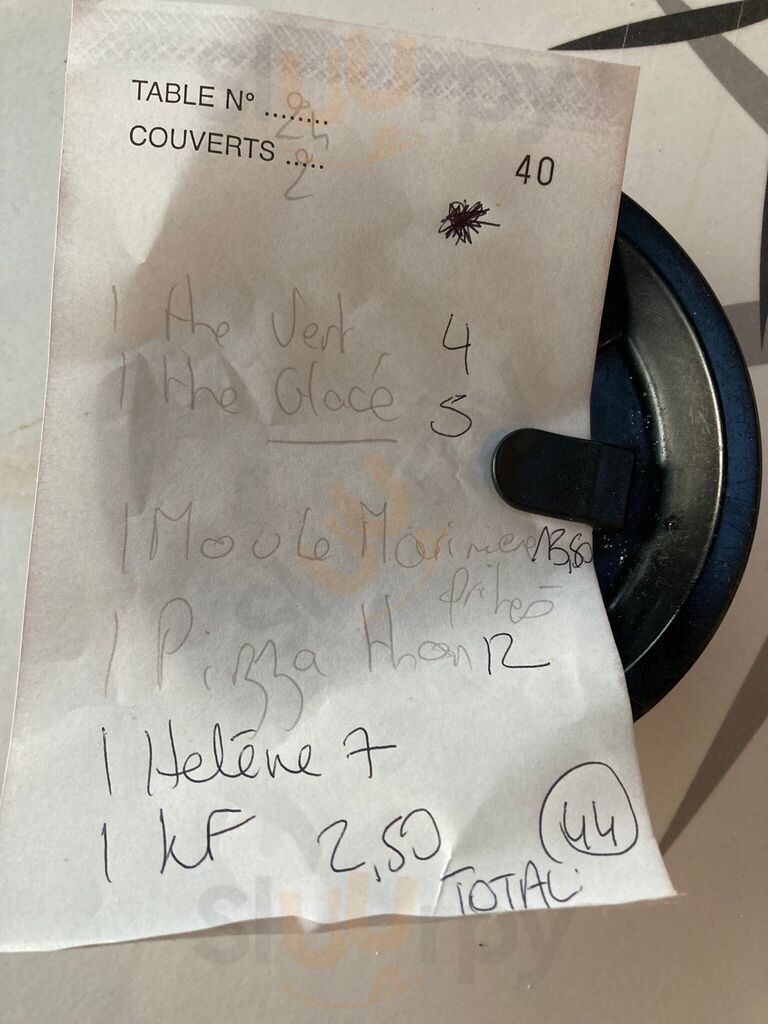 TABLE N° ........ 24
COUVERTS ..... 2
40
1 the Vert 4
1 the Glacé 5
1 Moule Mariniere 13,80
frites
1 Pizza thon 12
1 Helène 7
1 KF 2,50
44
TOTAL:
sluurpy